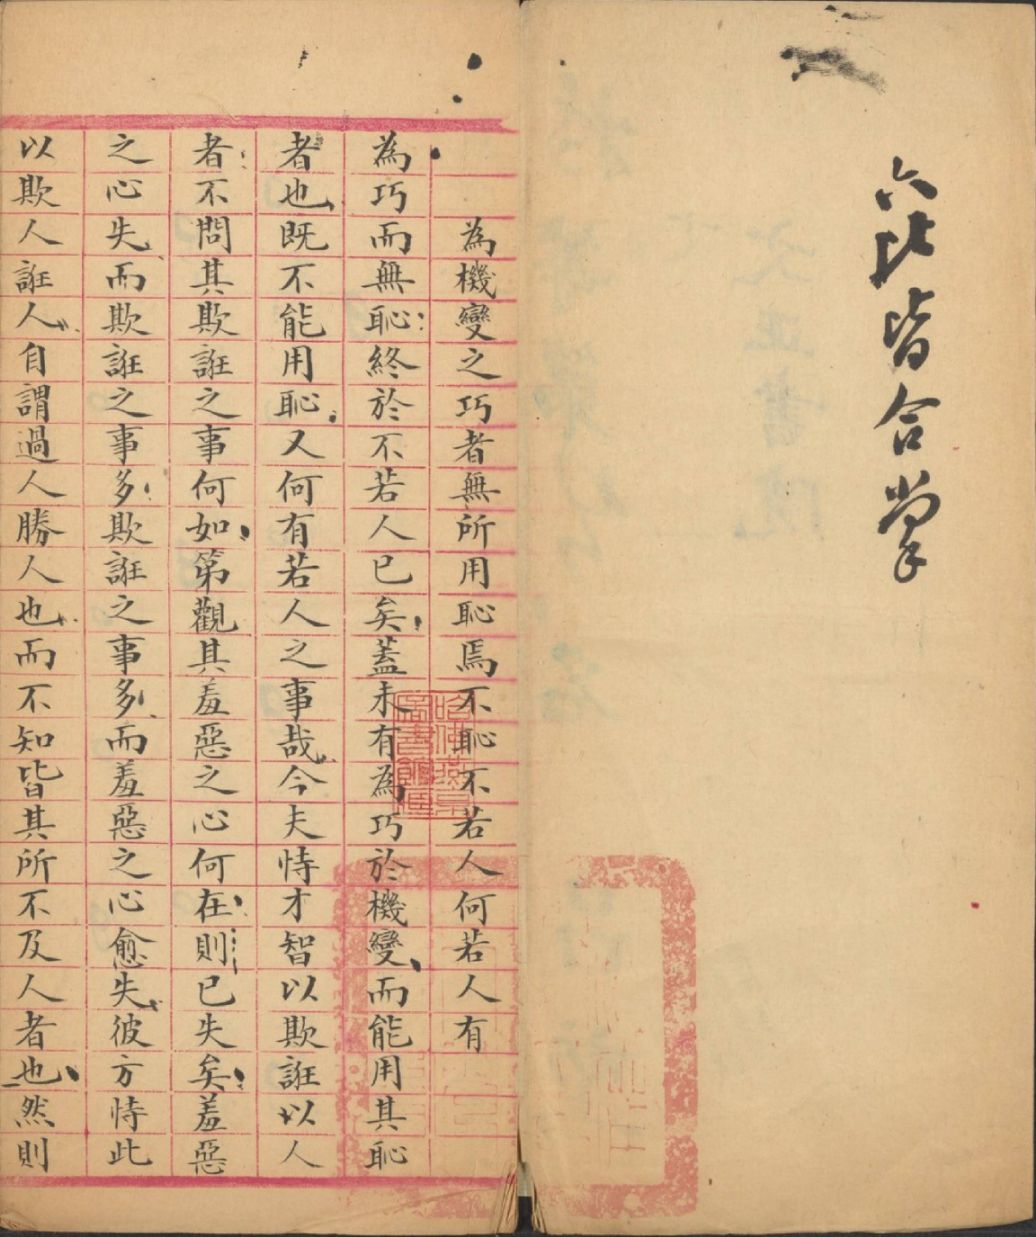 六比皆合掌
為機變之巧者無所用恥焉不恥不若人何若人有
為巧而無恥終於不若人已矣蓋未有為巧於機變而能用其恥
者也既不能用恥又何有若人之事哉今夫恃才智以欺誑以人
者不問其欺誑之事何如第觀其羞惡之心何在則已失矣羞惡
之心失而欺誑之事多欺誑之事多而羞惡之心愈失彼方恃此
以欺人誑人自謂過人勝人也而不知皆其所不及人者也然則